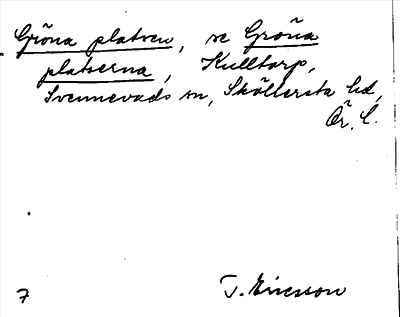 Gröna platsen, se Gröna
platserna, Kulltorp,
Svennevads sn, Sköllersta hd,
Ör. l.
T. Ericsson
7